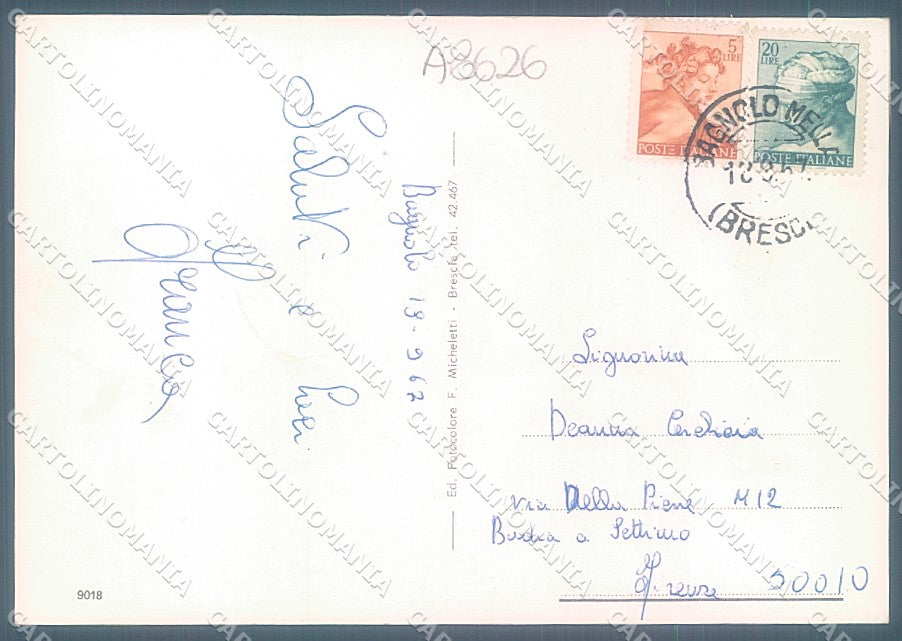 A8626
5
LIRE
POSTE ITALIANE
20
LIRE
POSTE ITALIANE
BAGNOLO MELLA
(BRESCI
Saluti e baci
Franco
Bagnolo 18-9 67
Ed. Fotocolore F. Micheletti - Brescia tel. 42.467
Signorina
Deanna
via Della Pieve M12
Badia a Settimo
Firenze 50010
9018
CARTOLINOMANIA